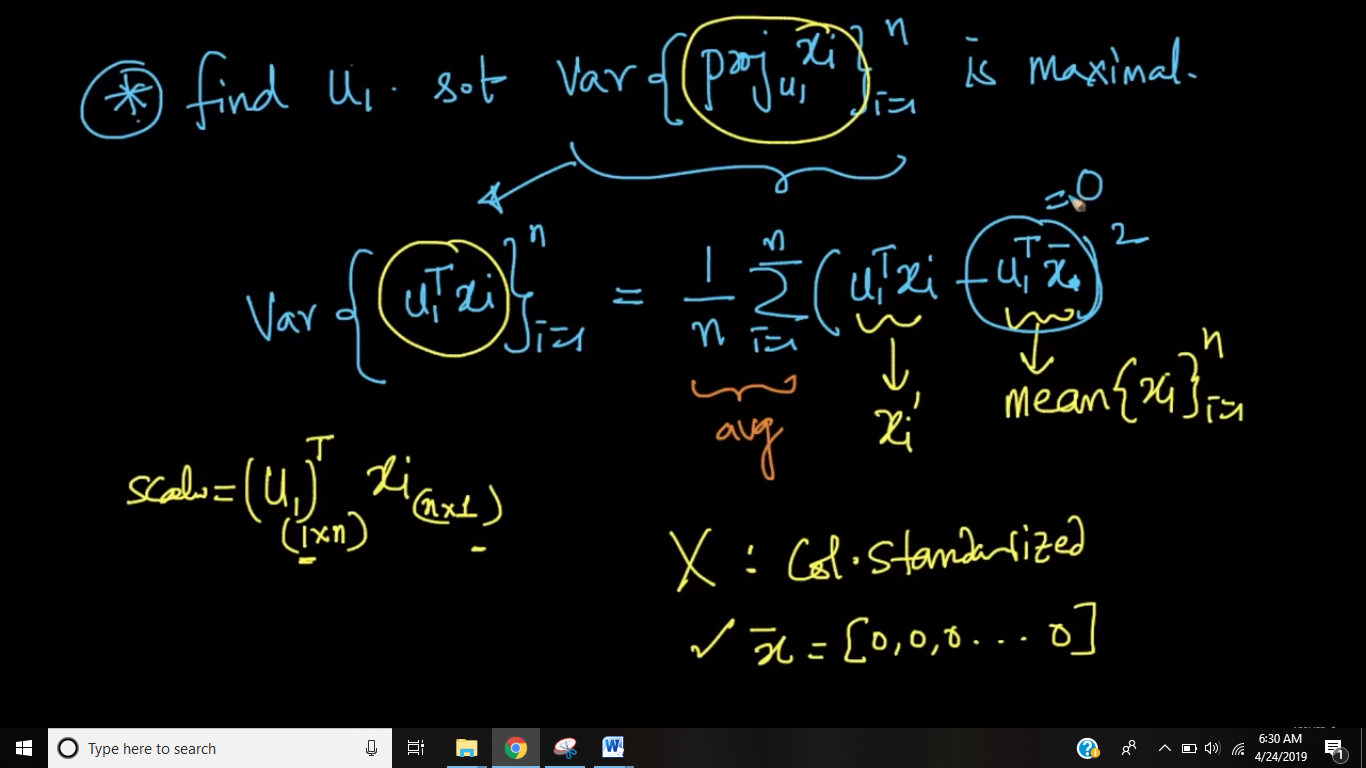 * find u₁. s.t Var { proj_u₁ xᵢ }ⁿᵢ₌₁ is maximal.
Var { u₁ᵀ xᵢ }ⁿᵢ₌₁ = 1/n ∑ⁿᵢ₌₁ ( u₁ᵀ xᵢ - u₁ᵀ x̄ )² = 0
avg
xᵢ'
mean { xᵢ }ⁿᵢ₌₁
scalar = (u₁)ᵀ (1×n) xᵢ (n×1)
X : Col. Standarized
✓ x̄ = [0, 0, 0 ... 0]
Type here to search
6:30 AM
4/24/2019
1